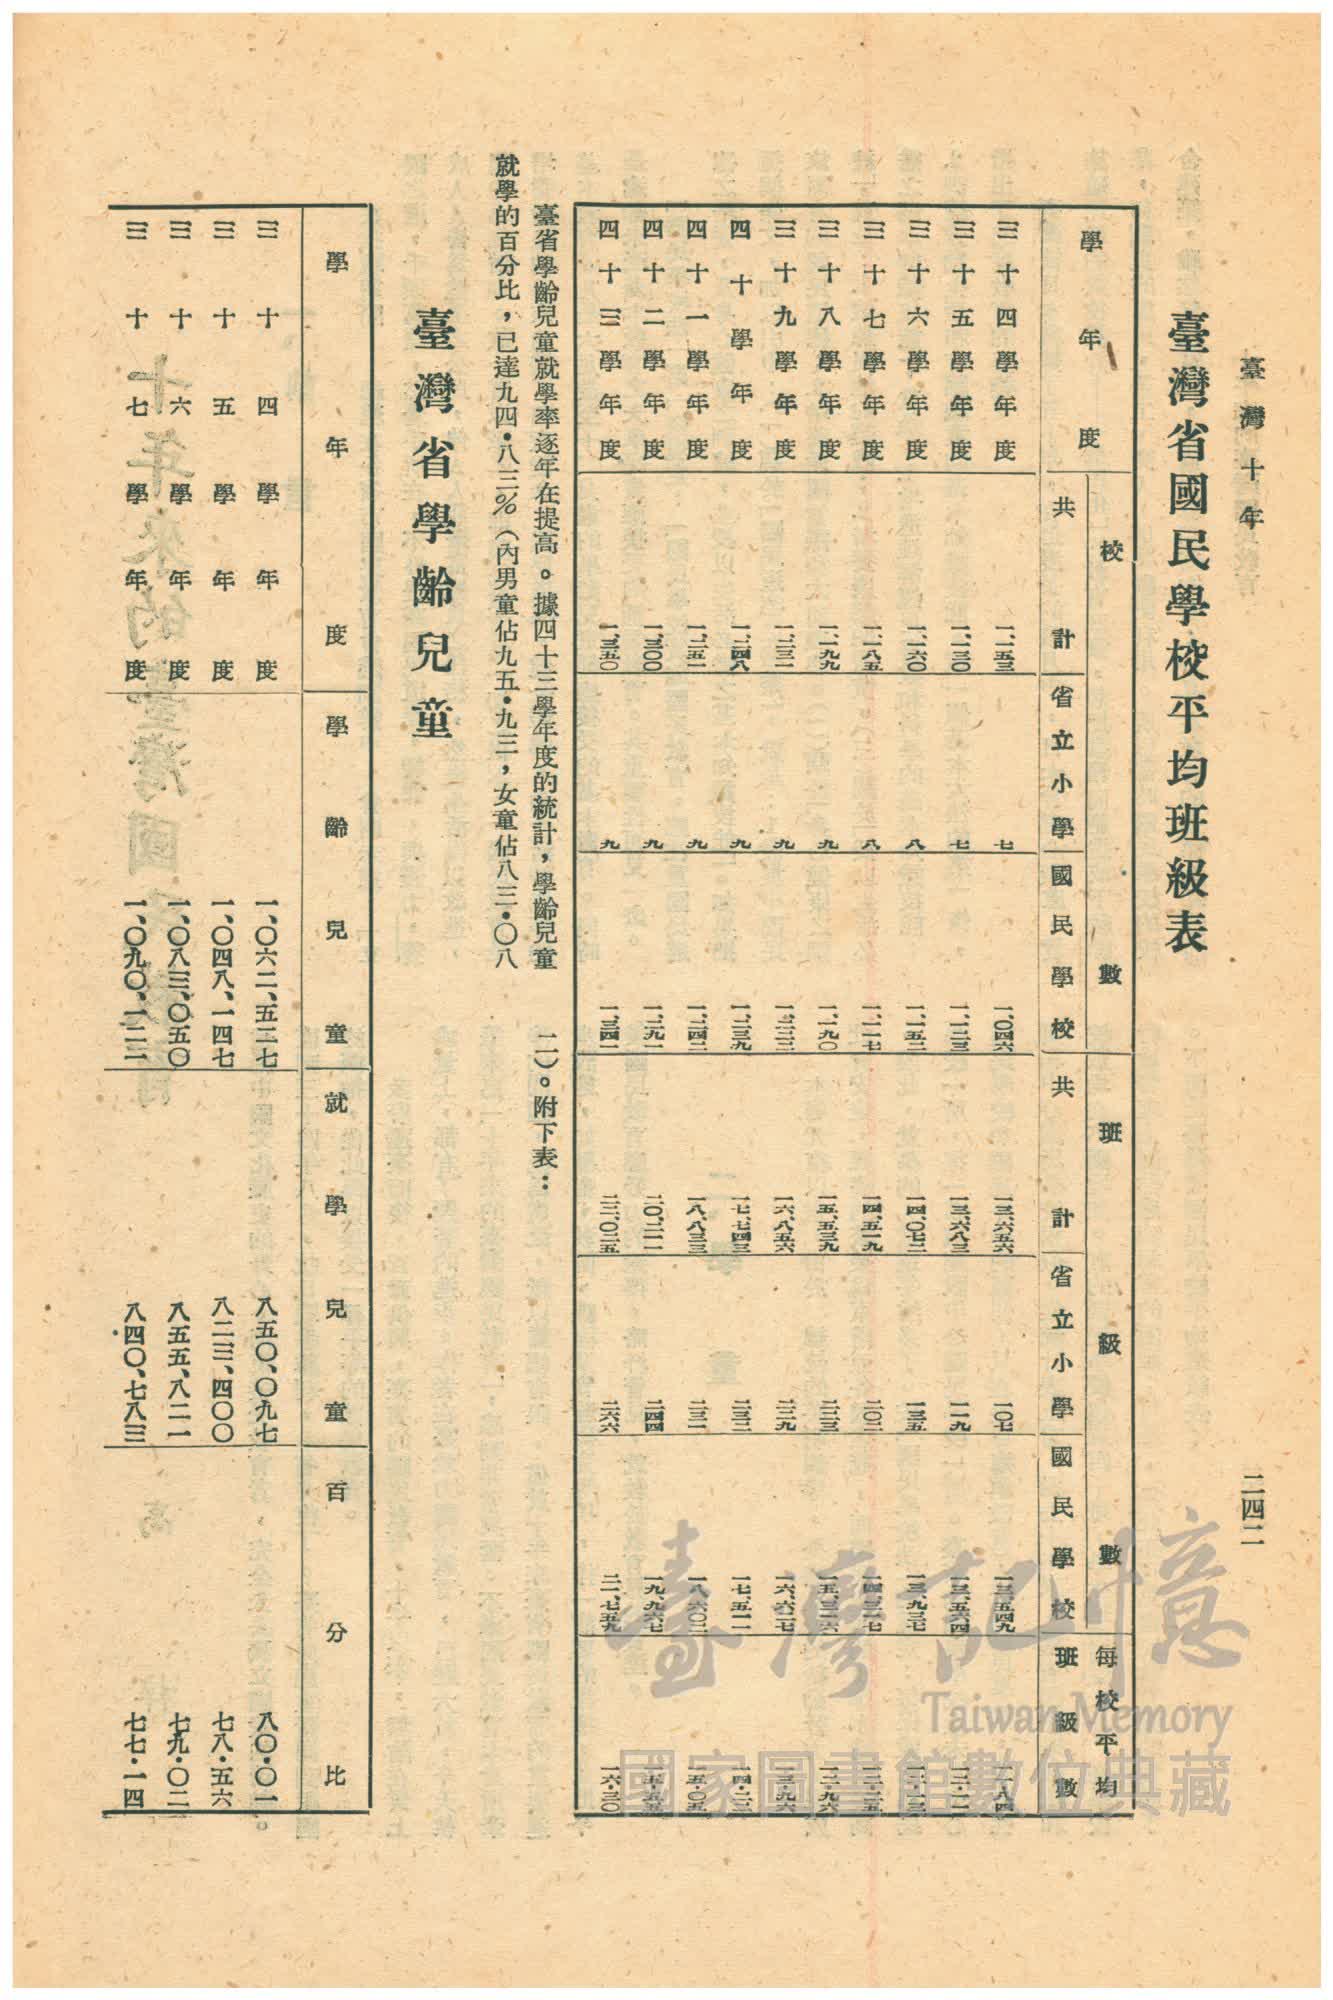 臺灣十年
二四二
臺灣省國民學校平均班級表
學年度 校數 班級數 每校平均班級數
共計 省立小學 國民學校 共計 省立小學 國民學校
三十四學年度 一、一五三 七 一、〇四六 一三、六五六 一〇七 一三、五四九 一一・八四
三十五學年度 一、一三〇 七 一、一二三 一三、六八三 一一九 一三、五六四 一二・一一
三十六學年度 一、一六〇 八 一、一五二 一四、〇七二 一三五 一三、九三七 一二・一三
三十七學年度 一、一八五 八 一、一一七 一四、五一九 二〇二 一四、三一七 一二・二五
三十八學年度 一、一九九 九 一、一九〇 一五、五三九 二二三 一五、三一六 一二・九六
三十九學年度 一、二三一 九 一、二二二 一六、八五六 二二九 一六、六二七 一三・九六
四十學年度 一、二四八 九 一、二三九 一七、七四三 二三二 一七、五一一 一四・二二
四十一學年度 一、二五一 九 一、二四二 一八、八三三 二三一 一八、六〇二 一五・〇五
四十二學年度 一、三〇〇 九 一、二九一 二〇、二一一 二四四 一九、九六七 一五・五五
四十三學年度 一、三五〇 九 一、三四一 二二、〇二五 二六六 二一、七五九 一六・三〇
臺省學齡兒童就學率逐年在提高。據四十三學年度的統計，學齡兒童
就學的百分比，已達九四・八三％（內男童佔九五・九三，女童佔八三・〇八
二）。附下表：
臺灣省學齡兒童
學年度 學齡兒童 就學兒童 百分比
三十四學年度 一、〇六二、五二七 八五〇、〇九七 八〇・〇一
三十五學年度 一、〇四八、一四七 八二三、四〇〇 七八・五六
三十六學年度 一、〇八三、〇五〇 八五五、八二一 七九・〇二
三十七學年度 一、〇九〇、一二二 八四〇、七八三 七七・一四
臺灣記憶
Taiwan Memory
國家圖書館數位典藏